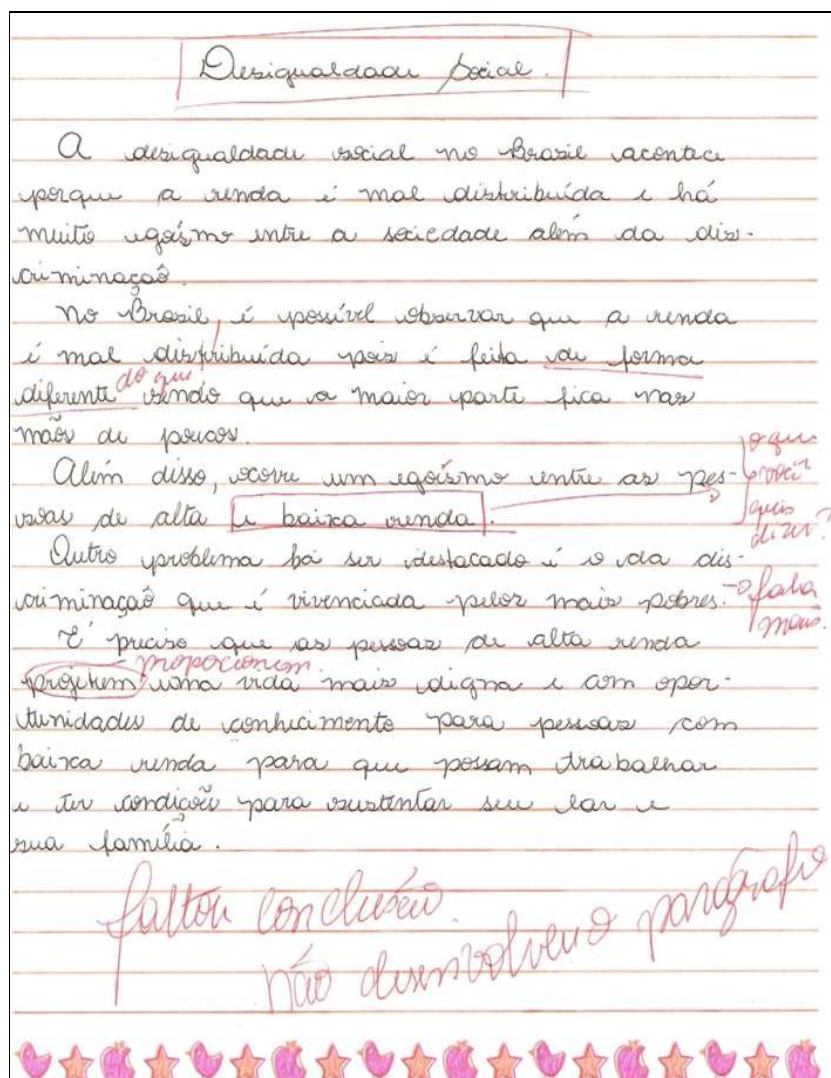 Desigualdade Social.
A desigualdade social no Brasil acontece
porque a renda é mal distribuída e há
muito egoísmo entre a sociedade além da dis-
criminação.
No Brasil, é possível observar que a renda
é mal distribuída pois é feita de forma
diferente do que sendo que a maior parte fica nas
mãos de poucos.
Além disso, ocorre um egoísmo entre as pes-
soas de alta e baixa renda.
o que
você
quis
dizer?
Outro problema há ser destacado é o da dis-
criminação que é vivenciada pelos mais pobres.
fala
mais.
É preciso que as pessoas de alta renda
proporcionem.
projetem uma vida mais digna e com opor-
tunidades de conhecimento para pessoas com
baixa renda para que possam trabalhar
e ter condições para sustentar seu lar e
sua família.
faltou conclusão.
não desenvolveu o parágrafo